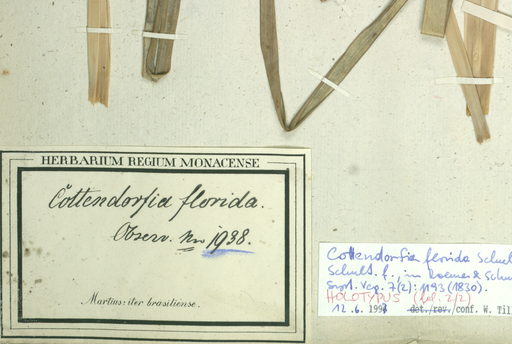 HERBARIUM REGIUM MONACENSE
Cottendorfia florida.
Observ. No 1938.
Martius: iter brasiliense.
Cottendorfia florida Schult
Schult. f., in Roemer & Schu
Syst. Veg. 7(2): 1193 (1830).
HOLOTYPUS (fol. 2/2)
12.6. 1991 det./rev./conf. W. Till